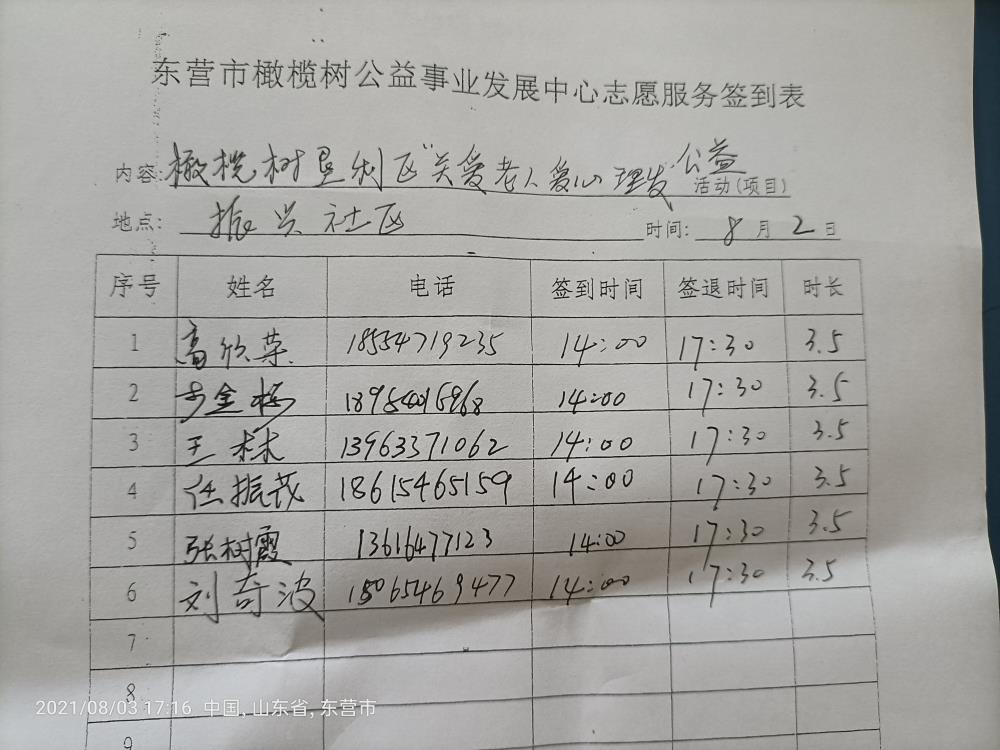 东营市橄榄树公益事业发展中心志愿服务签到表
内容:橄榄树垦利区"关爱老人爱心理发公益活动(项目)
地点:振兴社区 时间:8月2日
序号 姓名 电话 签到时间 签退时间 时长
1 高欣荣 18554719235 14:00 17:30 3.5
2 步金梅 14:00 17:30 3.5
3 王林 13963371062 14:00 17:30 3.5
4 任振茂 18615465159 14:00 17:30 3.5
5 张树霞 13616477123 14:00 17:30 3.5
6 刘奇波 15065469477 14:00 17:30 3.5
7
8
9
2021/08/03 17:16 中国,山东省,东营市